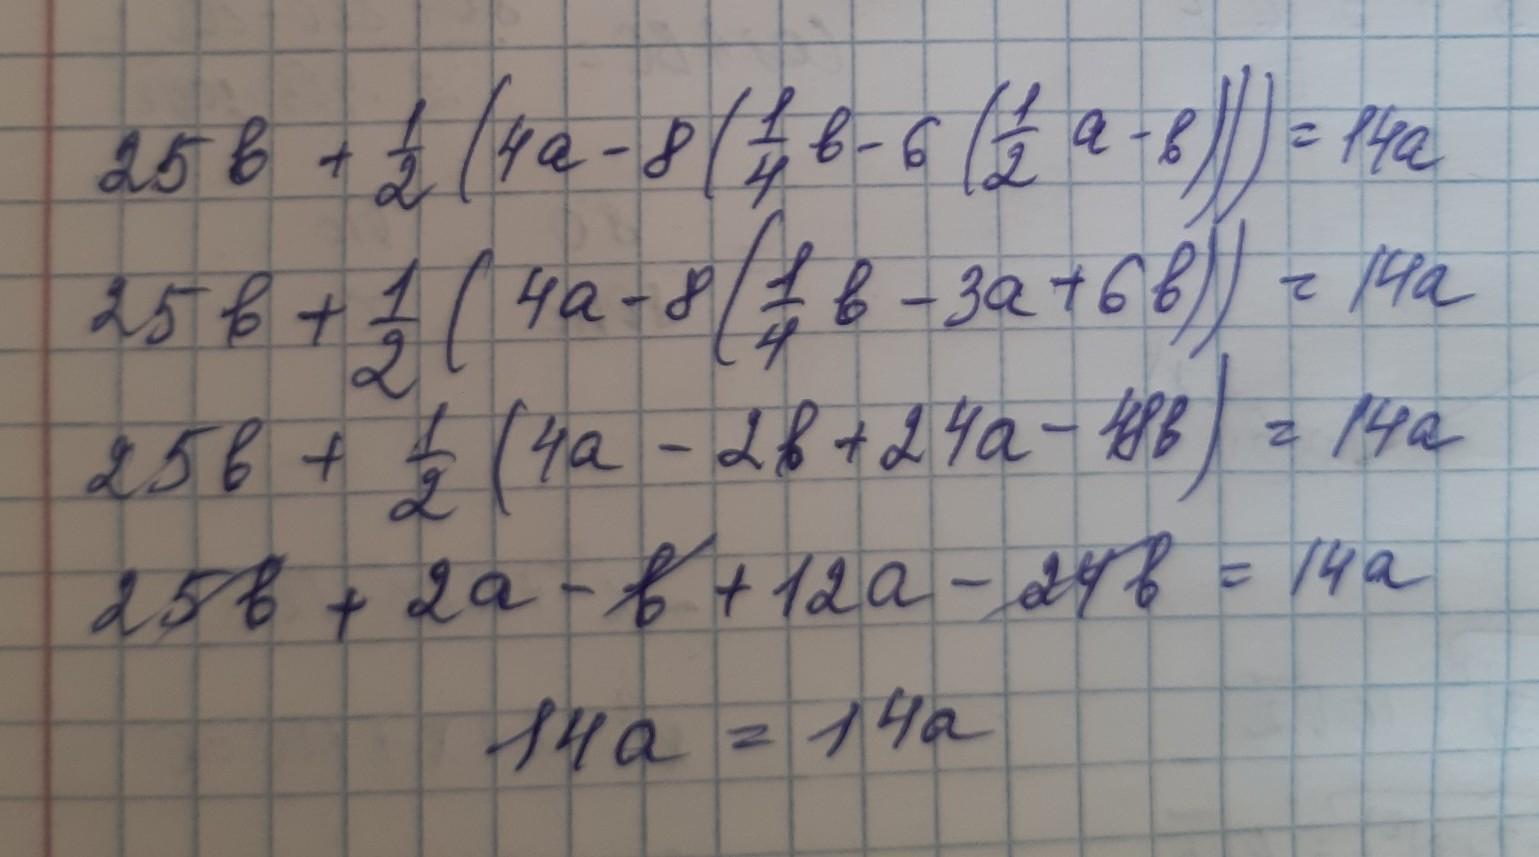 25в + 1/2 (4а - 8 (1/4 в - 6 (1/2 а - в))) = 14а
25в + 1/2 (4а - 8 (1/4 в - 3а + 6в)) = 14а
25в + 1/2 (4а - 2в + 24а - 48в) = 14а
25в + 2а - в + 12а - 24в = 14а
14а = 14а